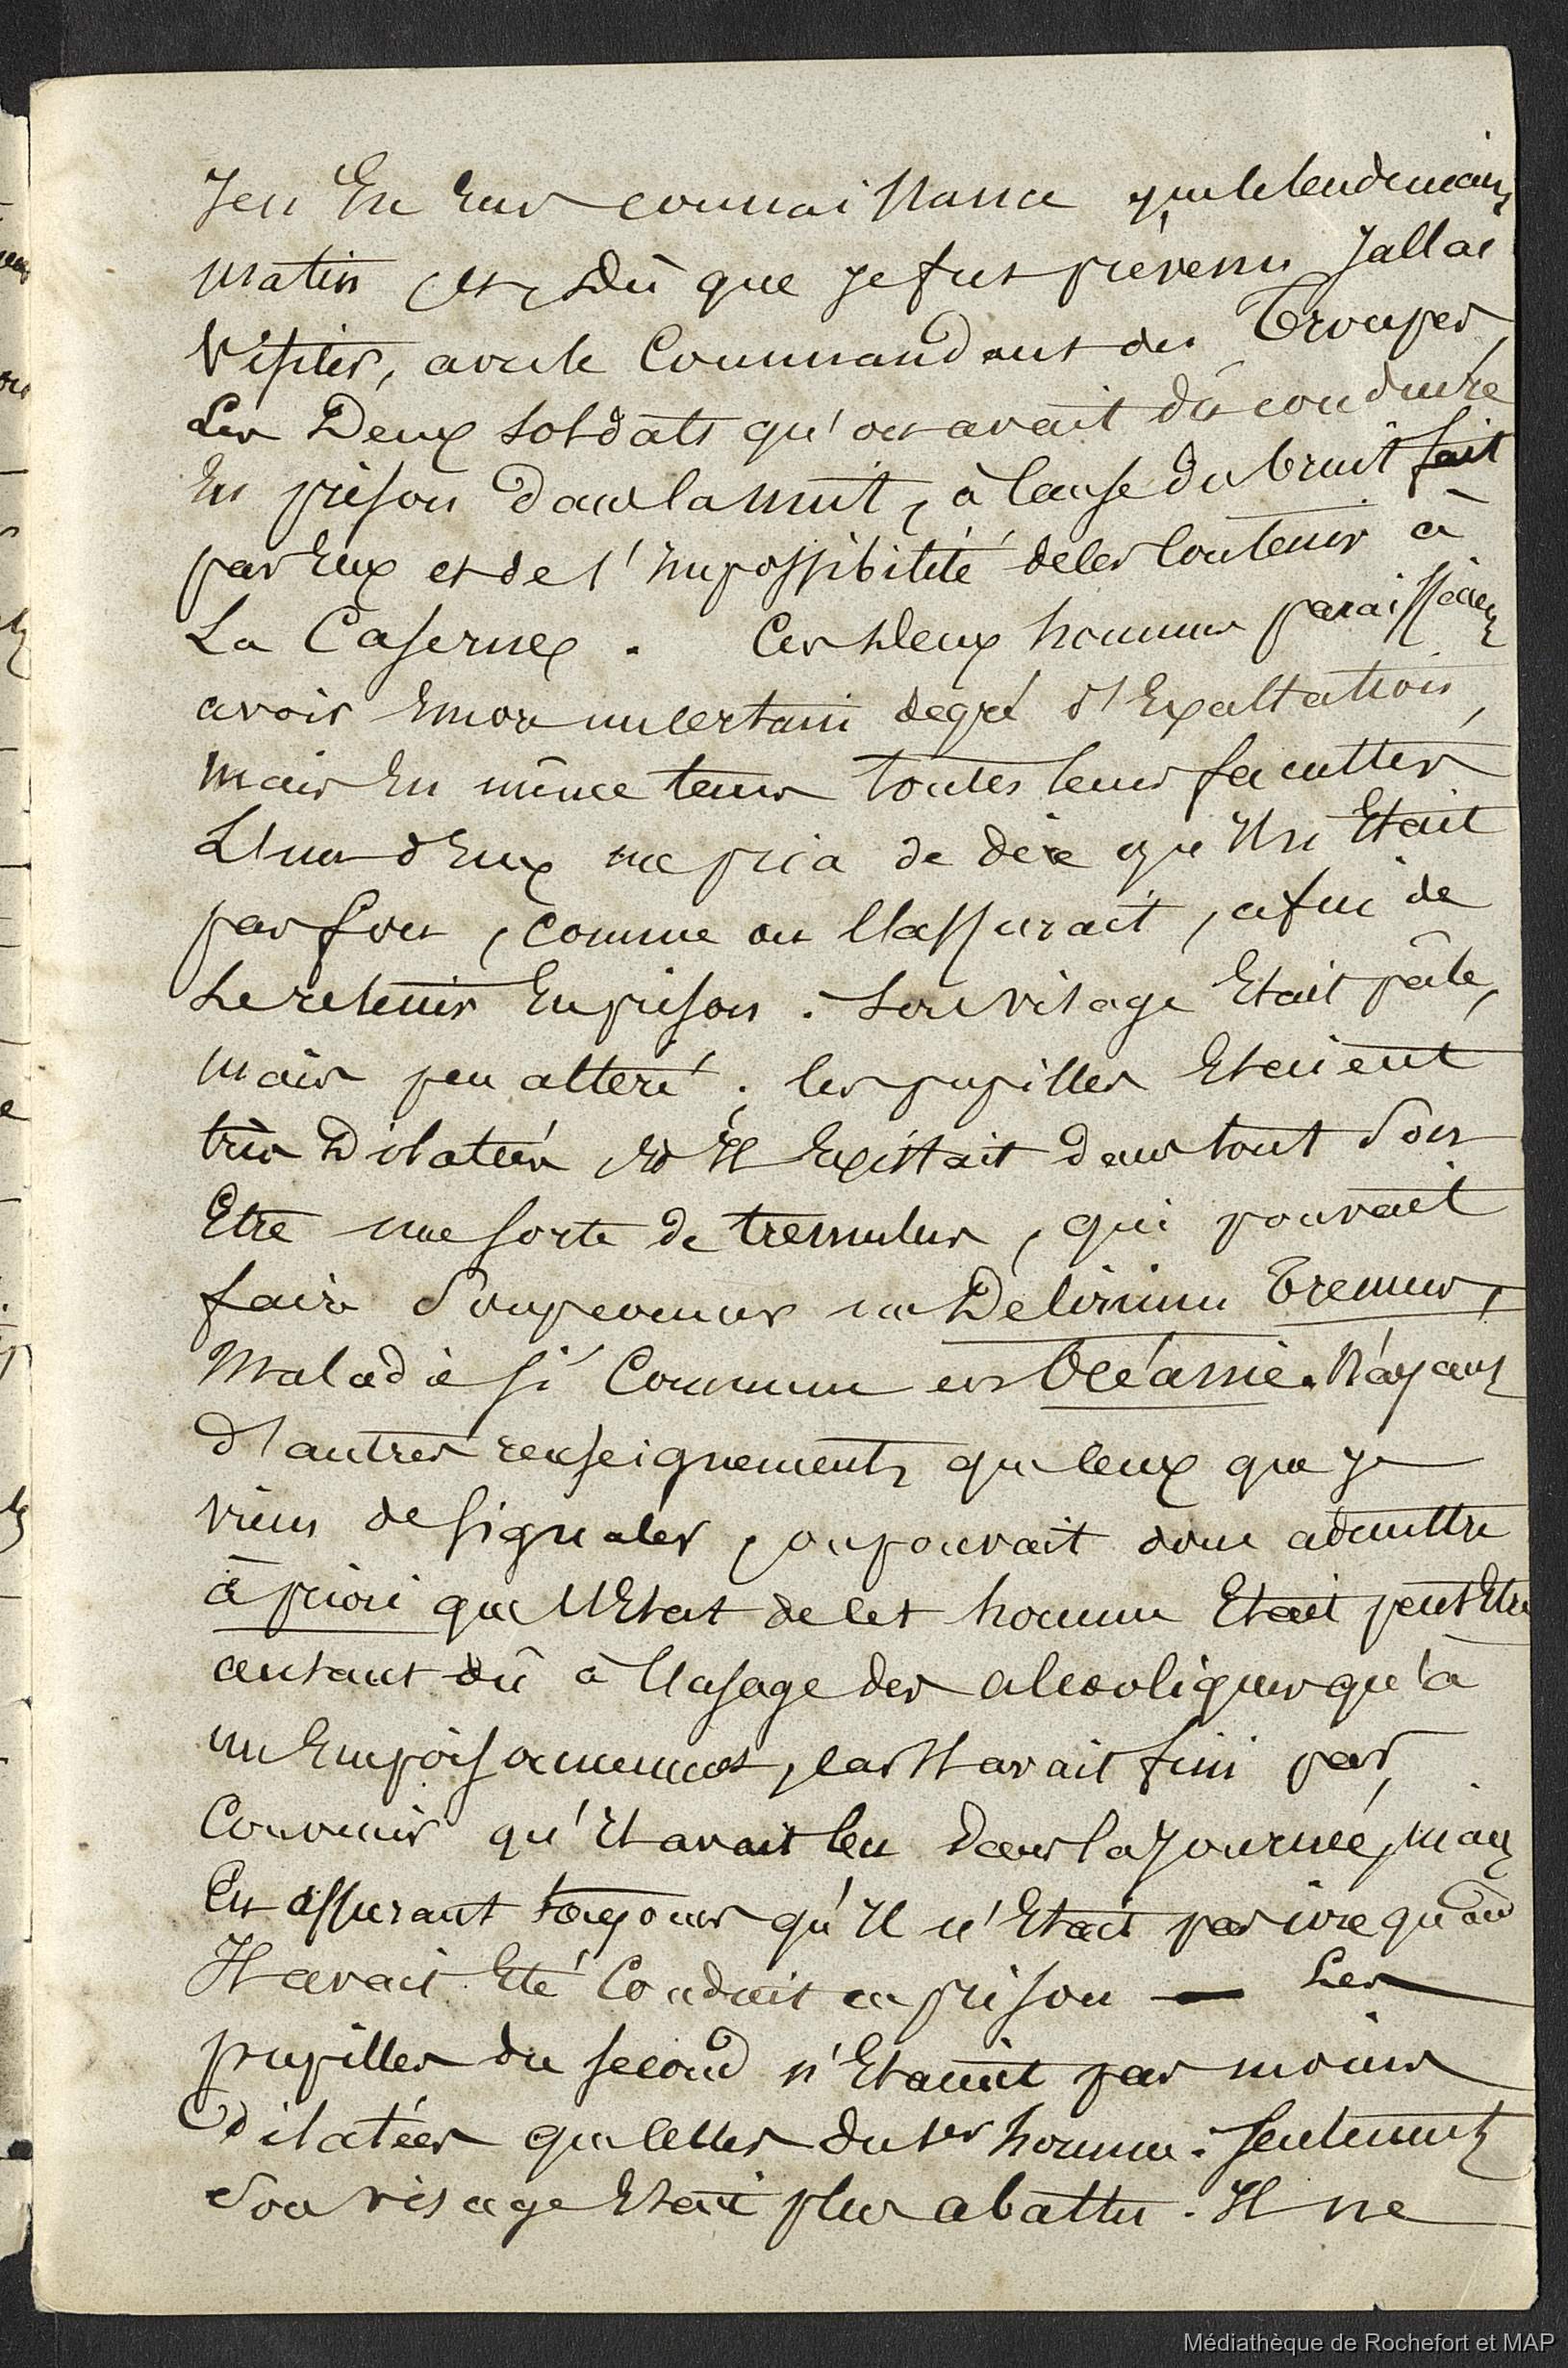 Je n'en eus connaissance que le lendemain
matin, et, dès que je fus prévenu j'allai
visiter, avec le Commandant des Troupes,
Les Deux soldats qu'on avait dû conduire
En prison dans la nuit, à cause du bruit fait
par Eux et de l'impossibilité de les contenir à
La Caserne. Ces Deux hommes paraissaient
avoir Encore un certain dégré d'Exaltation,
mais En même tems toutes leurs facultés
L'un d'Eux me pria de dire qu'Il n'Etait
pas fou, comme on l'assurait, afin de
Le retenir En prison. Son visage Etait pâle,
mais peu altéré ; les pupilles Etaient
très Dilatées et Il Existait dans tout Son
Etre une sorte de tremulus, qui pouvait
faire Soupçonner un Delirium Tremens,
Maladie si Commune en Océanie. N'ayant
d'autres renseignements que ceux que je
viens de signaler, on pouvait donc admettre
à priori que l'Etat de cet homme Etait peut Etre
autant dû à l'usage des alcooliques qu'à
un Empoisonnement, car Il avait fini par
Convenir qu'Il avait bu dans la Journée, mais
En assurant toujours qu'Il n'Etait pas ivre quand
Il avait Eté Conduit en prison — Les
pupilles du second n'Etaient pas moins
dilatées que celles du 1er homme ; seulement
Son visage Etait plus abattu. Il ne
Médiathèque de Rochefort et MAP